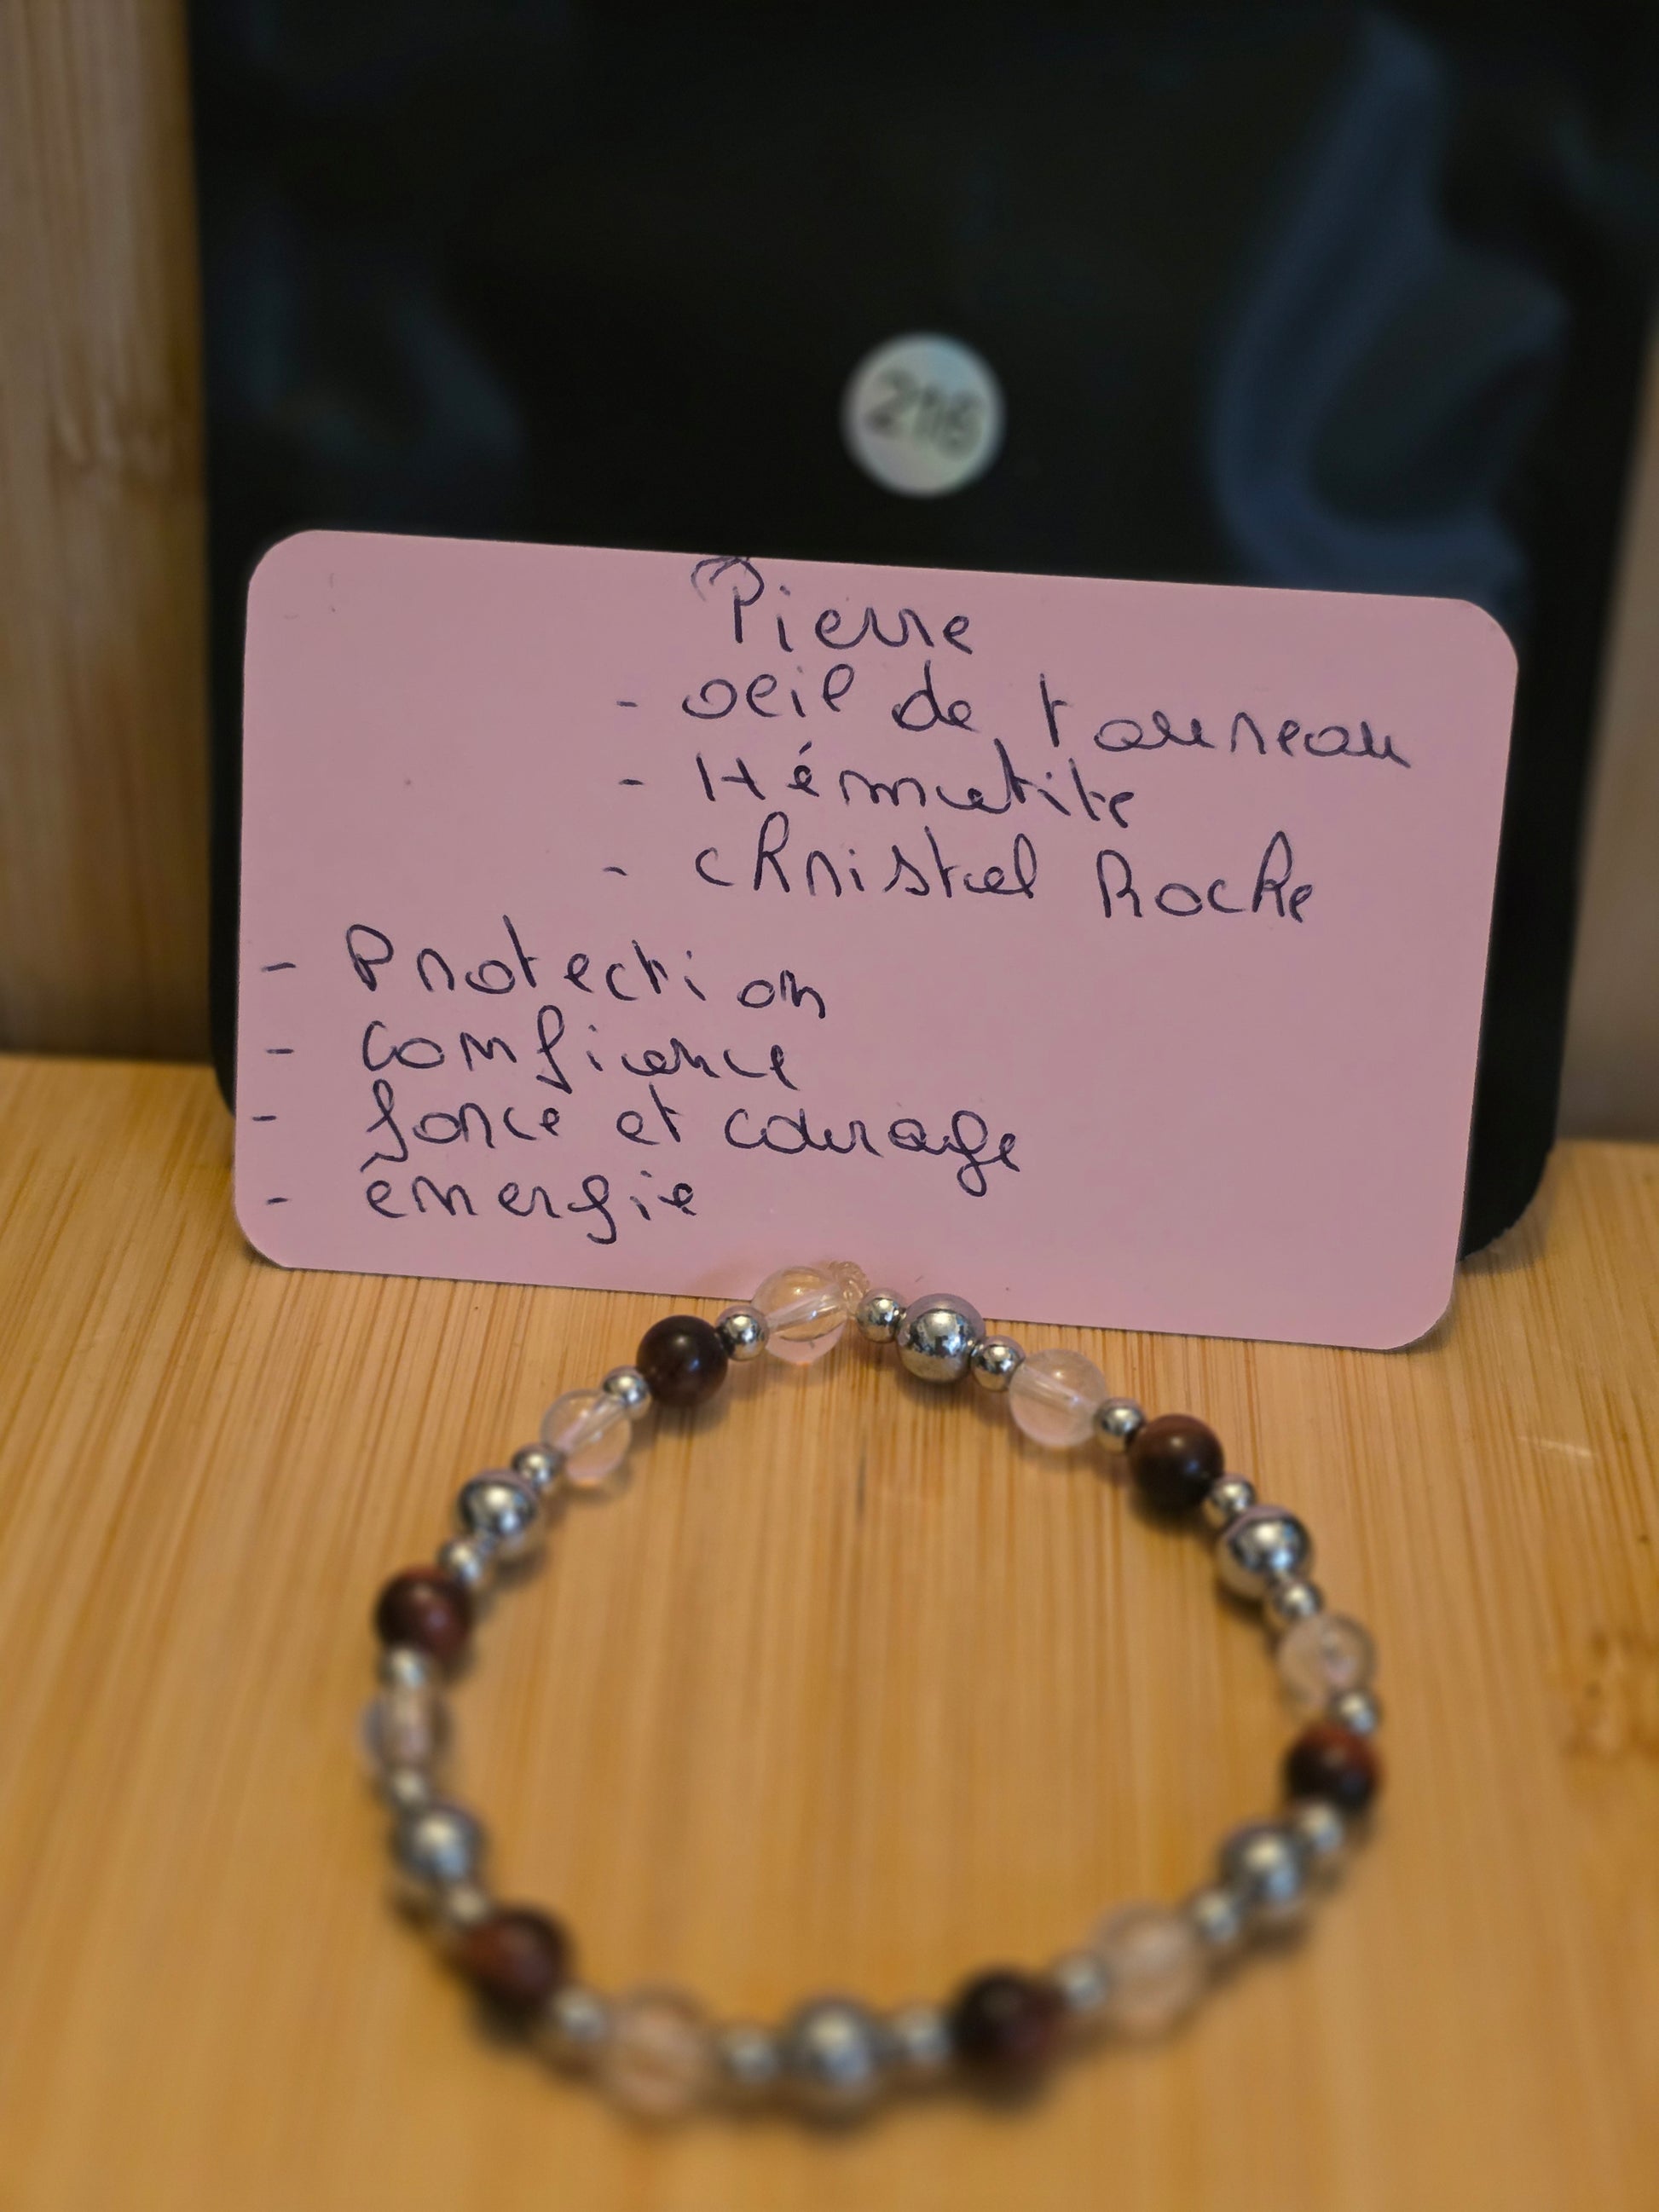 216
Pierre
- oeil de taureau
- Hématite
- christal Roche
- Protection
- confiance
- force et courage
- énergie